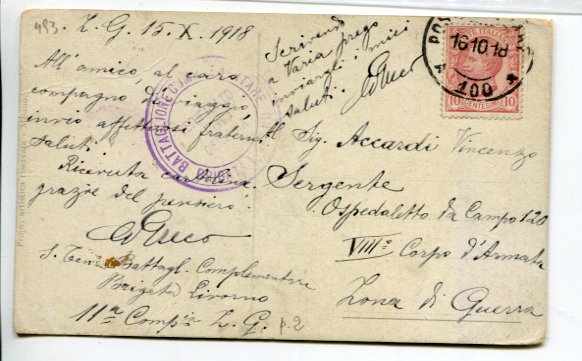 493
Z. G. 15. X. 1918
All'amico, al caro
compagno di viaggio,
invio affettuosi fraterni
saluti.
Ricevuta cartolina.
grazie del pensiero.
S. Ten. Battagl. Complementare
Brigata Livorno
11ª Compia Z. G. p. 2
Scrivendo
a Varia prego
inviargli i miei
saluti.
BATTAGLIONE
POSTA
16 10 18
100
POSTE ITALIANE
10 CENTESIMI 10
Al Sig. Accardi Vincenzo
Sergente
Ospedaletto da Campo 120
VIIIº Corpo d'Armata
Zona di Guerra